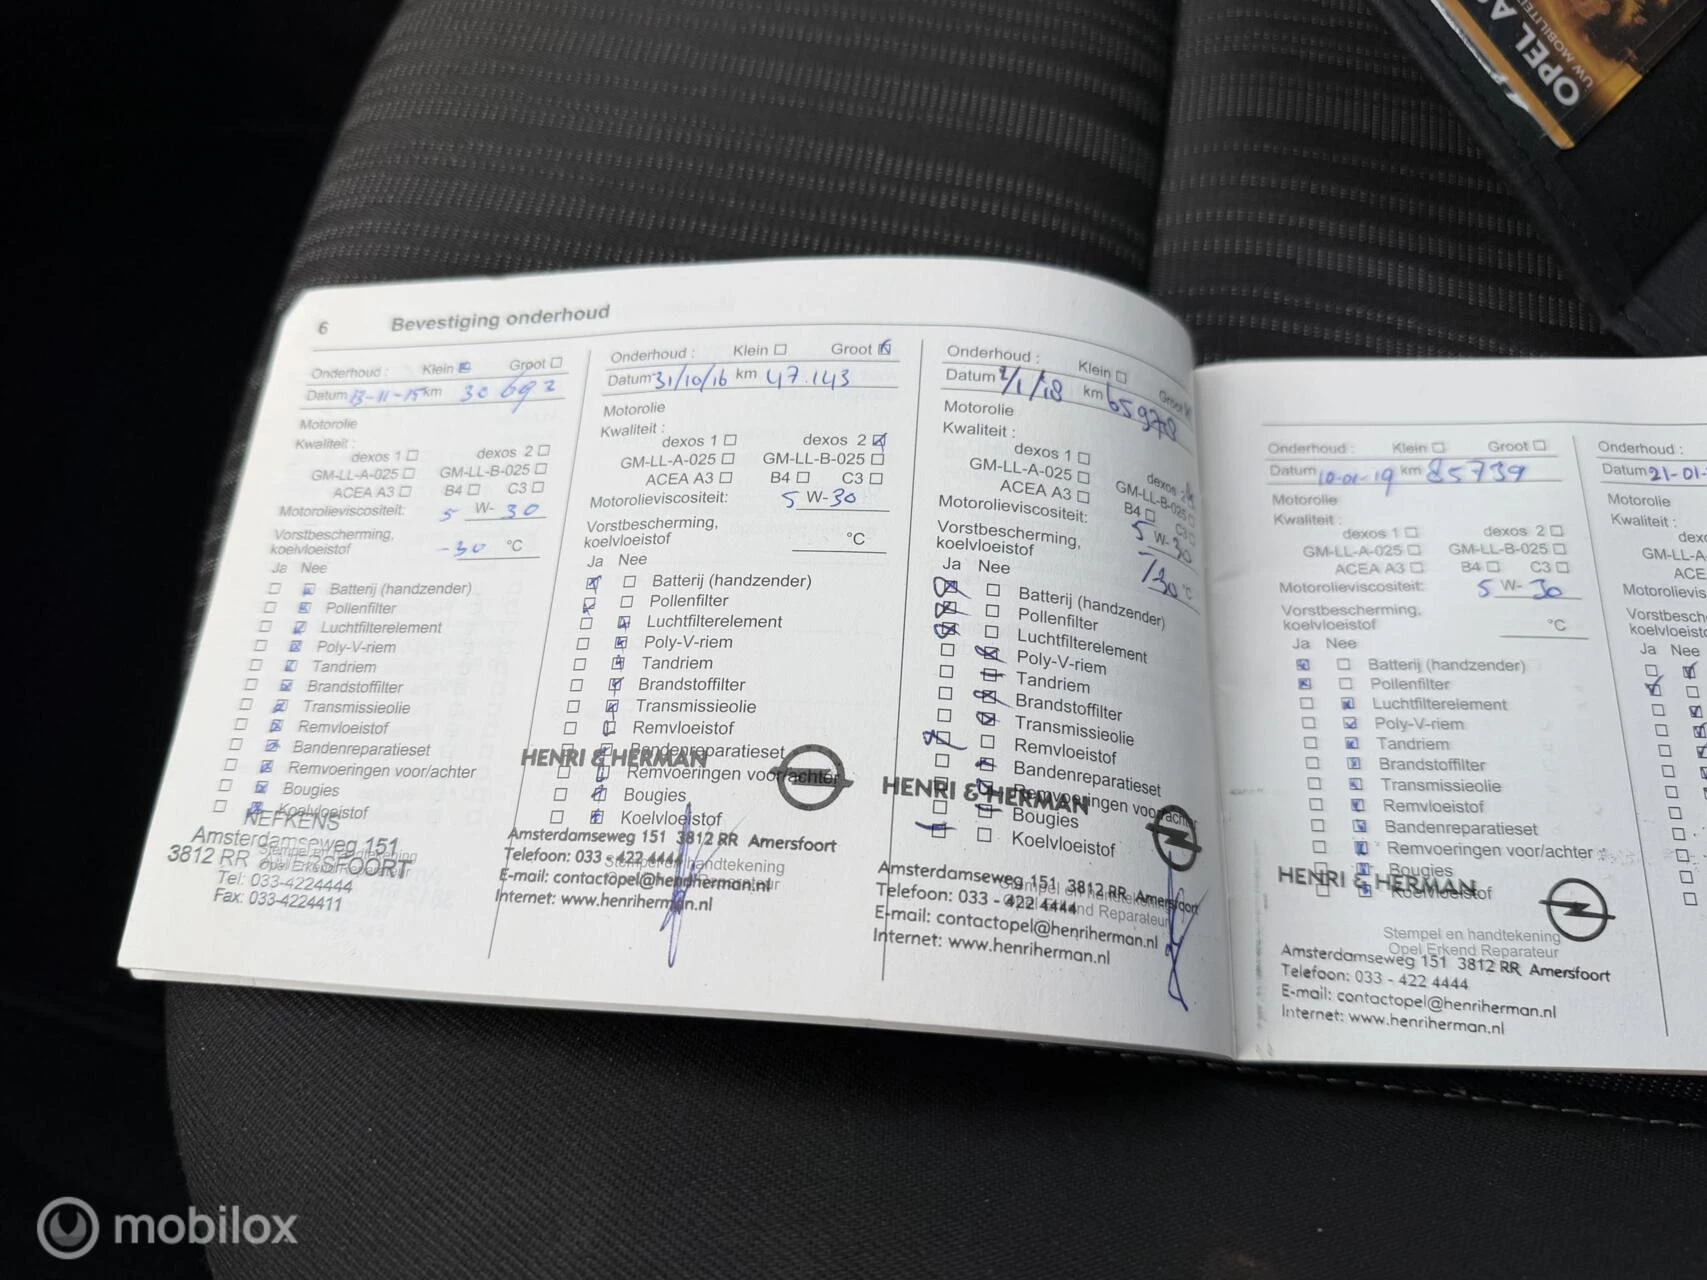 OPEL
UW
6 Bevestiging onderhoud
Onderhoud : Klein Groot
Datum 13-11-15 km 30 692
Motorolie
Kwaliteit :
dexos 1 dexos 2
GM-LL-A-025 GM-LL-B-025
ACEA A3 B4 C3
Motorolieviscositeit: 5 W- 30
Vorstbescherming,
koelvloeistof -30 °C
Ja Nee
Batterij (handzender)
Pollenfilter
Luchtfilterelement
Poly-V-riem
Tandriem
Brandstoffilter
Transmissieolie
Remvloeistof
Bandenreparatieset
Remvoeringen voor/achter
Bougies
Koelvloeistof
NEFKENS
Amsterdamseweg 151
3812 RR AMERSFOORT
Stempel en handtekening
Opel Erkend Reparateur
Tel: 033-4224444
Fax: 033-4224411
Onderhoud : Klein Groot
Datum 31/10/16 km 47.143
Motorolie
Kwaliteit :
dexos 1 dexos 2
GM-LL-A-025 GM-LL-B-025
ACEA A3 B4 C3
Motorolieviscositeit: 5 W-30
Vorstbescherming,
koelvloeistof °C
Ja Nee
Batterij (handzender)
Pollenfilter
Luchtfilterelement
Poly-V-riem
Tandriem
Brandstoffilter
Transmissieolie
Remvloeistof
Bandenreparatieset
HENRI & HERMAN
Remvoeringen voor/achter
Bougies
Koelvloeistof
Amsterdamseweg 151 3812 RR Amersfoort
Telefoon: 033 - 422 4444
Stempel en handtekening
E-mail: contactopel@henriherman.nl
Internet: www.henriherman.nl
Onderhoud : Klein Groot
Datum 2/1/18 km 65978
Motorolie
Kwaliteit :
dexos 1 dexos 2
GM-LL-A-025 GM-LL-B-025
ACEA A3 B4 C3
Motorolieviscositeit: 5 W-30
Vorstbescherming,
koelvloeistof -30 °C
Ja Nee
Batterij (handzender)
Pollenfilter
Luchtfilterelement
Poly-V-riem
Tandriem
Brandstoffilter
Transmissieolie
Remvloeistof
Bandenreparatieset
HENRI & HERMAN
Remvoeringen voor/achter
Bougies
Koelvloeistof
Amsterdamseweg 151 3812 RR Amersfoort
Telefoon: 033 - 422 4444
Stempel en handtekening
Opel Erkend Reparateur
E-mail: contactopel@henriherman.nl
Internet: www.henriherman.nl
Onderhoud : Klein Groot
Datum 10-01-19 km 85739
Motorolie
Kwaliteit :
dexos 1 dexos 2
GM-LL-A-025 GM-LL-B-025
ACEA A3 B4 C3
Motorolieviscositeit: 5 W-30
Vorstbescherming,
koelvloeistof °C
Ja Nee
Batterij (handzender)
Pollenfilter
Luchtfilterelement
Poly-V-riem
Tandriem
Brandstoffilter
Transmissieolie
Remvloeistof
Bandenreparatieset
Remvoeringen voor/achter
Bougies
HENRI & HERMAN
Koelvloeistof
Stempel en handtekening
Opel Erkend Reparateur
Amsterdamseweg 151 3812 RR Amersfoort
Telefoon: 033 - 422 4444
E-mail: contactopel@henriherman.nl
Internet: www.henriherman.nl
Onderhoud :
Datum 21-01-
Motorolie
Kwaliteit :
GM-LL-A
ACE
Ja Nee
mobilox